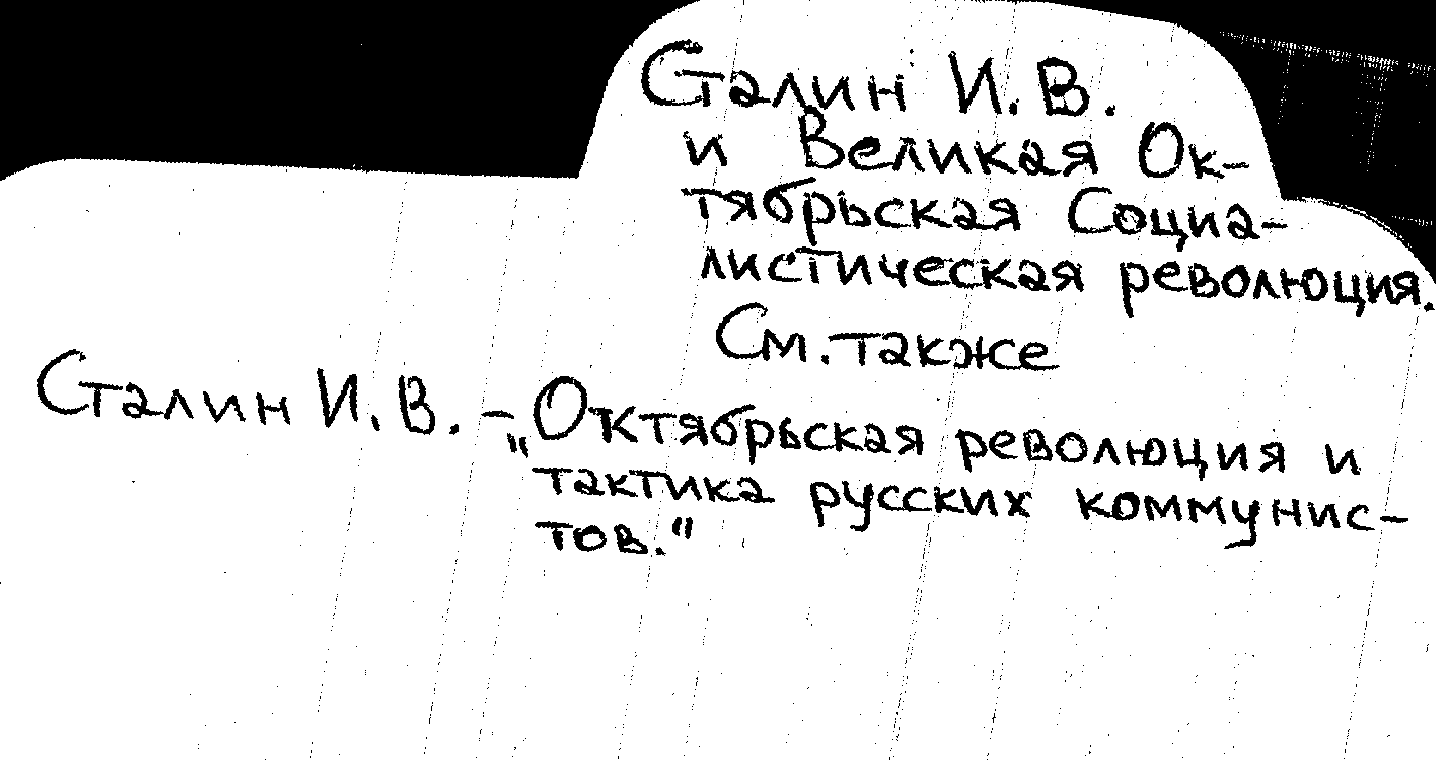 Сталин И. В.
и Великая Ок-
тябрьская Социа-
листическая революция.
См. также
Сталин И. В. - „Октябрьская революция и
тактика русских коммунис-
тов."